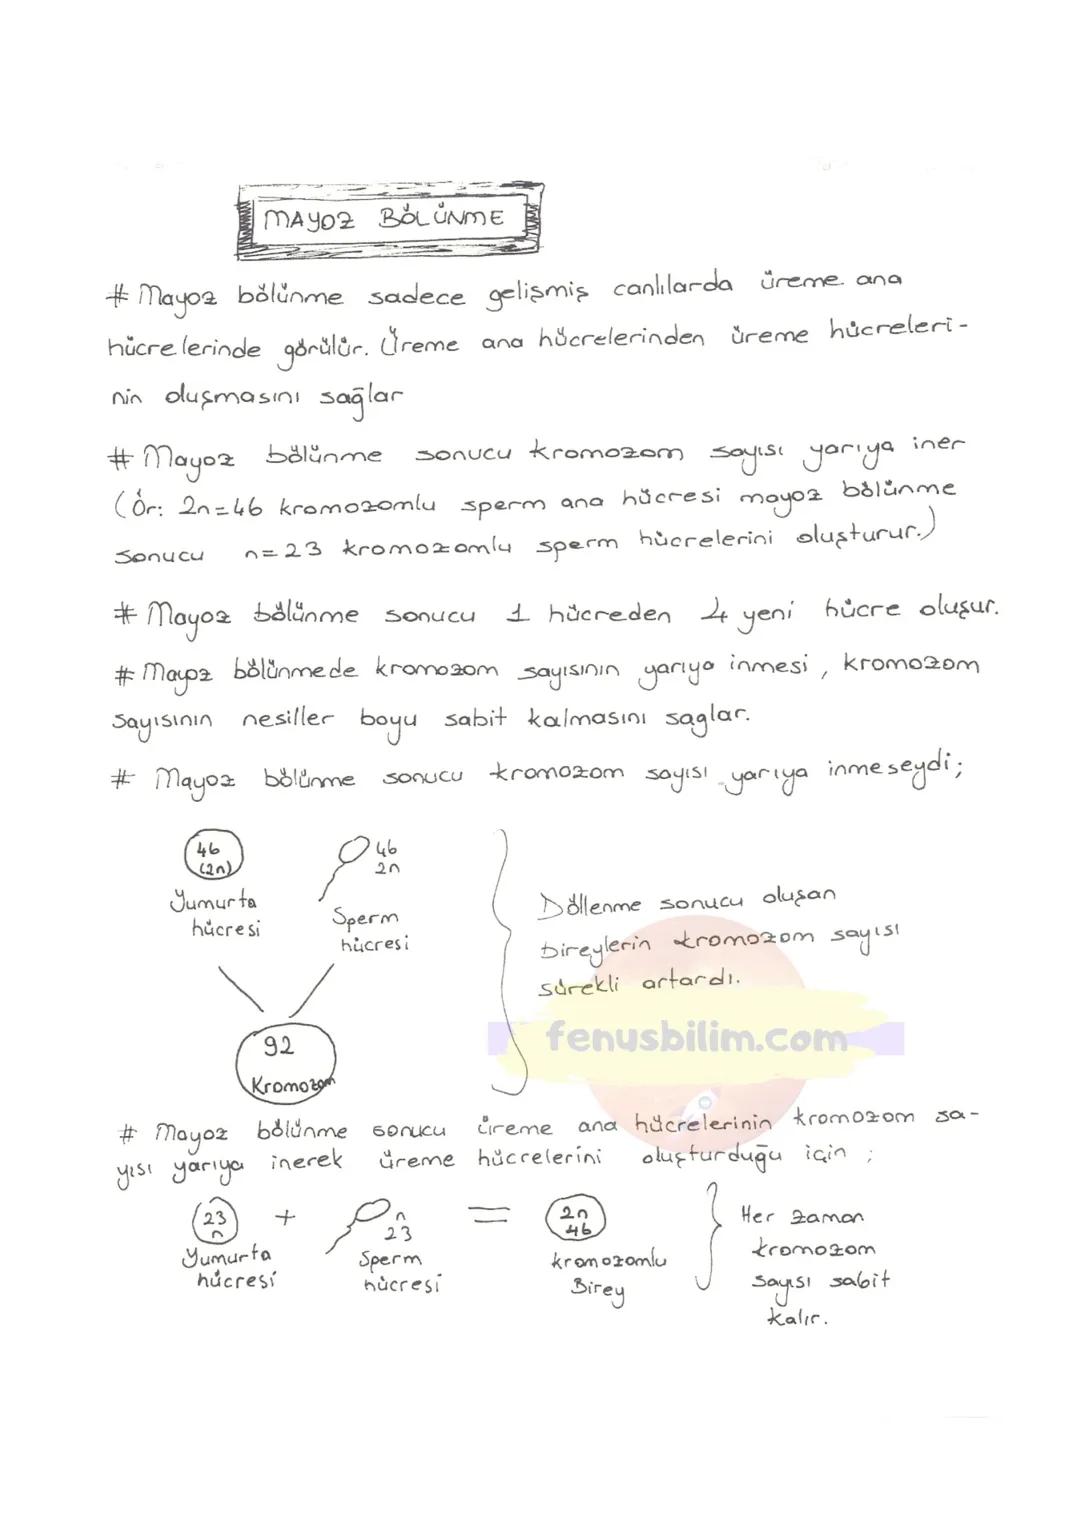 MAYOZ BÖLÜNME
# Mayoz bölünme sadece gelişmiş canlılarda üreme ana
hücrelerinde görülür. Üreme ana hücrelerinden üreme hücreleri-
nin oluşmasını sağlar
# Mayoz bölünme sonucu kromozom sayısı yarıya iner
(Ör: 2n=46 kromozomlu sperm ana hücresi mayoz bölünme
sonucu n=23 kromozomlu sperm hücrelerini oluşturur.)
# Mayoz bölünme sonucu 1 hücreden 4 yeni hücre oluşur.
# Mayoz bölünmede kromozom sayısının yarıya inmesi, kromozom
sayısının nesiller boyu sabit kalmasını sağlar.
# Mayoz bölünme sonucu kromozom sayısı yarıya inmeseydi;
46
(2n)
Yumurta
hücresi
46
2n
Sperm
hücresi
92
Kromozom
Döllenme sonucu oluşan
bireylerin kromozom sayısı
sürekli artardı.
fenusbilim.com
# Mayoz bölünme sonucu üreme ana hücrelerinin kromozom sa-
yısı yarıya inerek üreme hücrelerini oluşturduğu için ;
23
n
Yumurta
hücresi
+
n
23
Sperm
hücresi
=
2n
46
kromozomlu
Birey
Her zaman
kromozom
sayısı sabit
kalır.